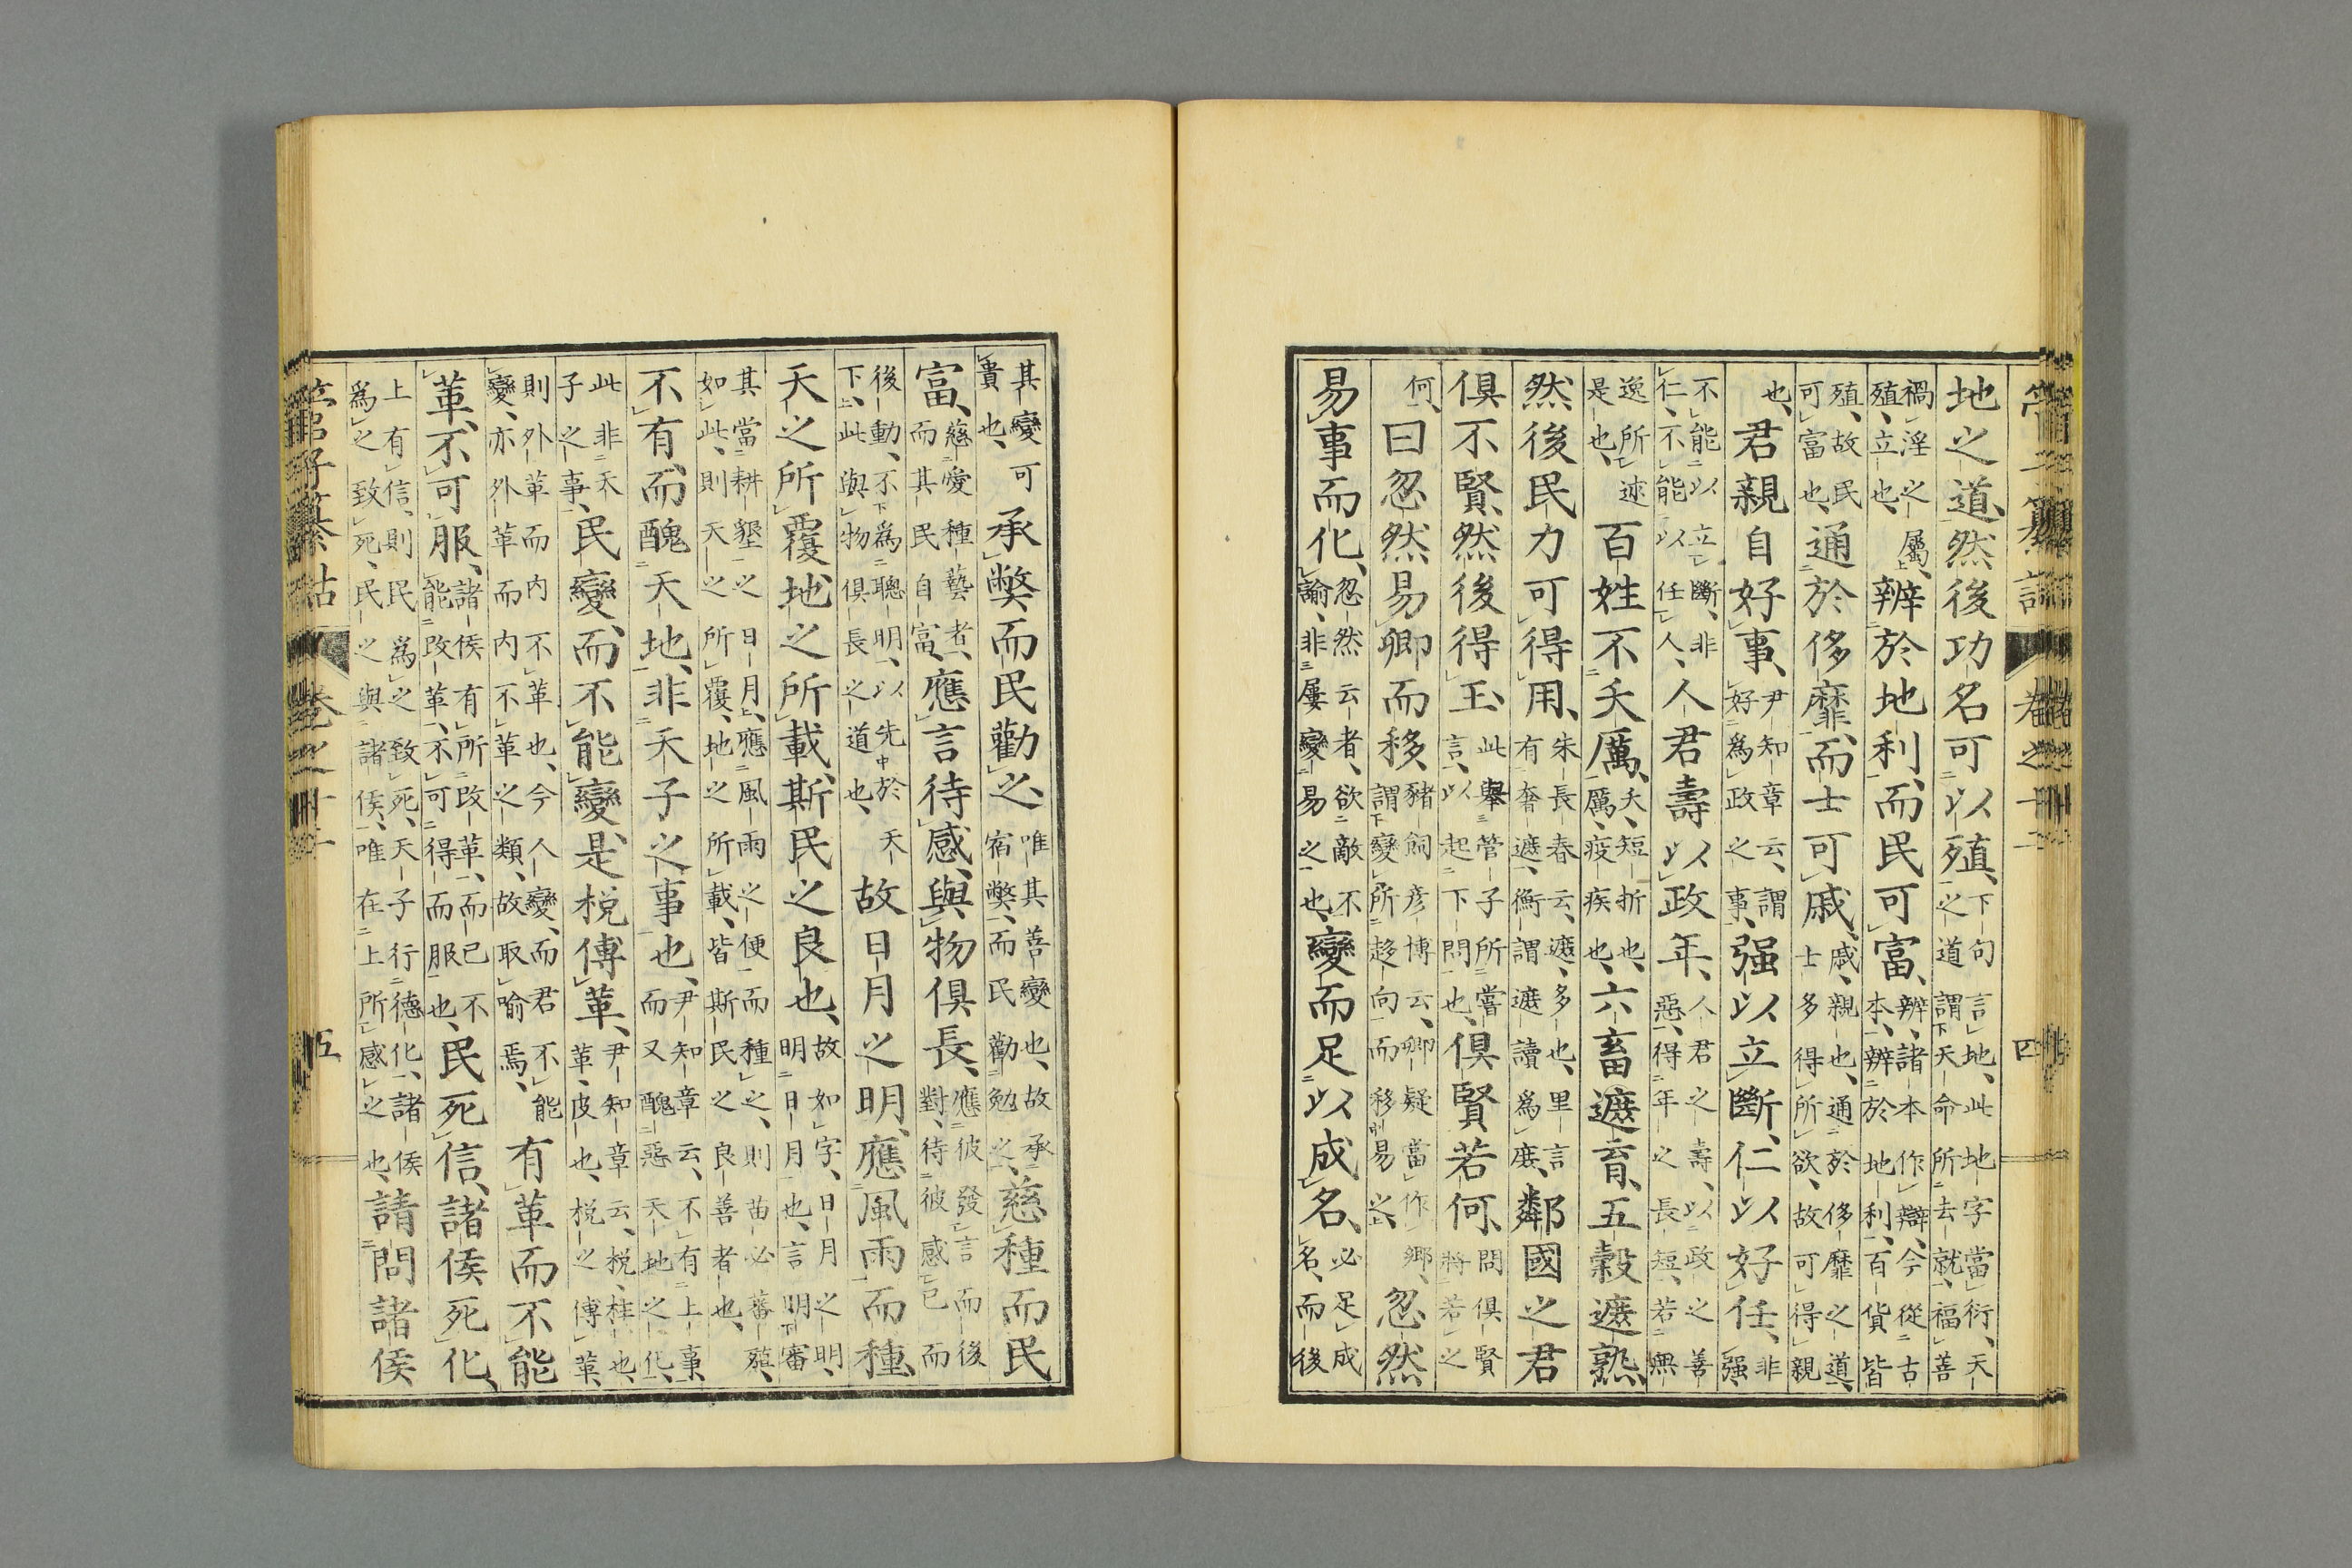 管子纂詁 卷之十二 四
地之道、然後功名可以殖、下句言地、此地字當衍、天之道謂天命所去就、福善
禍淫之屬、殖、立也、辨於地利、而民可富、辨、諸本作辯、今從古本、辨於地利、百貨皆
殖、故民可富也、通於侈靡、而士可戚、戚、親也、通於侈靡之道、士多得所欲、故可得親
也、君親自好事、尹知章云、謂好爲政之事、强以立斷、仁以好任、非强
不能以立斷、非仁、不能以任人、人君壽以政年、人君之壽、以政之善惡、得年之長短、若無
逸所述是也、百姓不夭厲、夭、短折也、厲、疫疾也、六畜遮育、五穀遮熟、
然後民力可得用、朱長春云、遮、多也、里言有奢遮、衡謂遮讀爲庶、鄰國之君
俱不賢、然後得王、此擧管子所嘗言、以起下問也、俱賢若何、問俱賢將若之
何、曰忽然易卿而移、豬飼彦博云、卿疑當作郷、謂變所趍向而移易之、忽然
易事而化、忽然云者、欲敵不諭、非屢變易之也、變而足以成名、必足成名、而後
其變可貴也、承獘而民勸之、唯其善變也、故承宿獘、而民勸勉之、慈種而民
富、慈愛種藝者、而其民自富、應言待感、與物俱長、應彼發言而後對、待彼感已而
後動、不爲聰明、以先於天下、此與物俱長之道也、故日月之明、應風雨而種、
天之所覆、地之所載、斯民之良也、故如字、日月之明、明日月也、言明審
其當耕墾之日月、應風雨之便、而種之、則苗必蕃殖、如此、則天之所覆、地之所載、皆斯民之良善者也、
不有、而醜天地、非天子之事也、尹知章云、不有上事、而又醜惡天地之化、
此非天子之事、民變、而不能變、是梲傅革、尹知章云、梲、柱也、革、皮也、梲之傅革、
則外革而内不革也、今人變、而君不能變、亦外革而内不革之類、故取喻焉、有革而不能
革、不可服、諸侯有所改革、而已不能改革、不可得而服也、民死信、諸侯死化、
上有信、則民爲之致死、天子行德化、諸侯爲之致死、民之與諸侯、唯在上所感之也、請問諸侯
管子纂詁 卷之十二 五